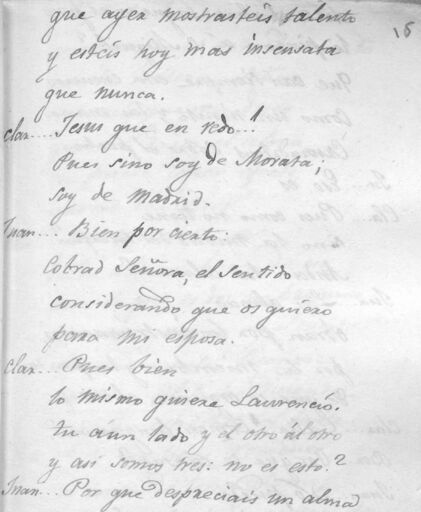 16
que ayer mostrasteis talento
y esteis hoy mas insensata
que nunca.
Clar... Jesus que enredo..!
Pues sino soy de Morata;
soy de Madrid.
Juan... Bien por cierto:
Cobrad Señora, el sentido
considerando que os quiero
para mi esposa.
Clar... Pues bien
lo mismo quiere Laurencio.
tu a un lado y el otro ál otro
y asi somos tres: no es esto.?
Juan... Por que despreciais un alma